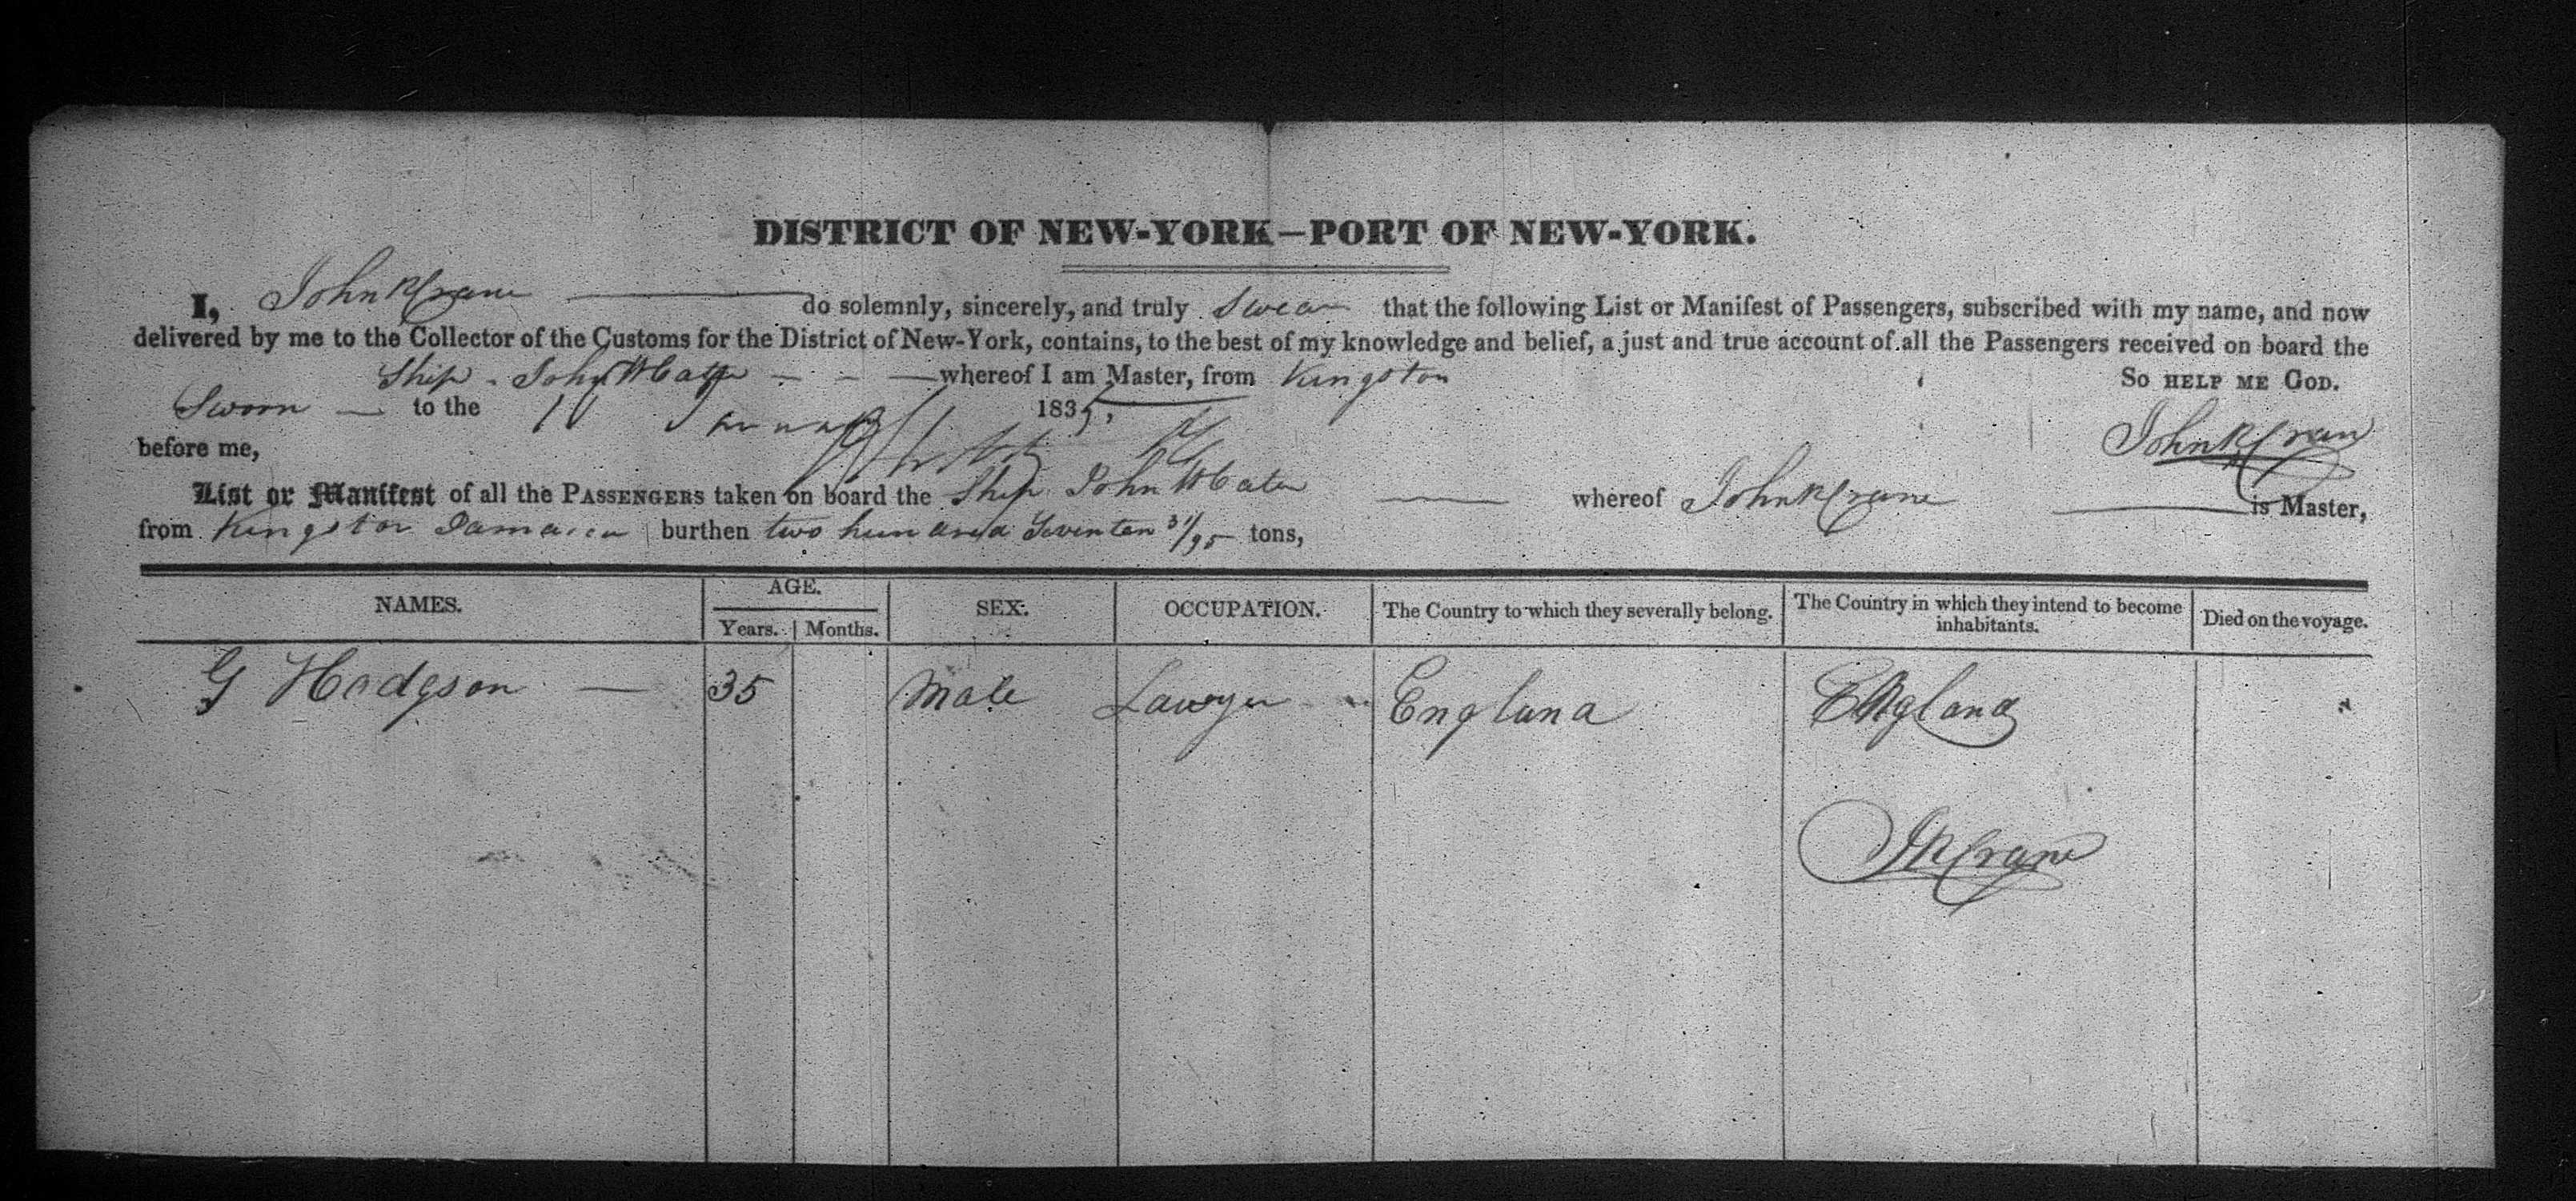 DISTRICT OF NEW-YORK—PORT OF NEW-YORK.
I, John R Crane do solemnly, sincerely, and truly Swear that the following List or Manifest of Passengers, subscribed with my name, and now
delivered by me to the Collector of the Customs for the District of New-York, contains, to the best of my knowledge and belief, a just and true account of all the Passengers received on board the
Ship John W Cater whereof I am Master, from Kingston So HELP ME GOD.
Sworn to the 183
before me, John R Crane
List or Manifest of all the PASSENGERS taken on board the Ship John W Cater whereof John R Crane is Master,
from Kingston Jamaica burthen two hundred Seventen 31/95 tons,
NAMES. AGE. Years. Months. SEX. OCCUPATION. The Country to which they severally belong. The Country in which they intend to become inhabitants. Died on the voyage.
G Hodgson — 35 Male Lawyer England England
J R Crane